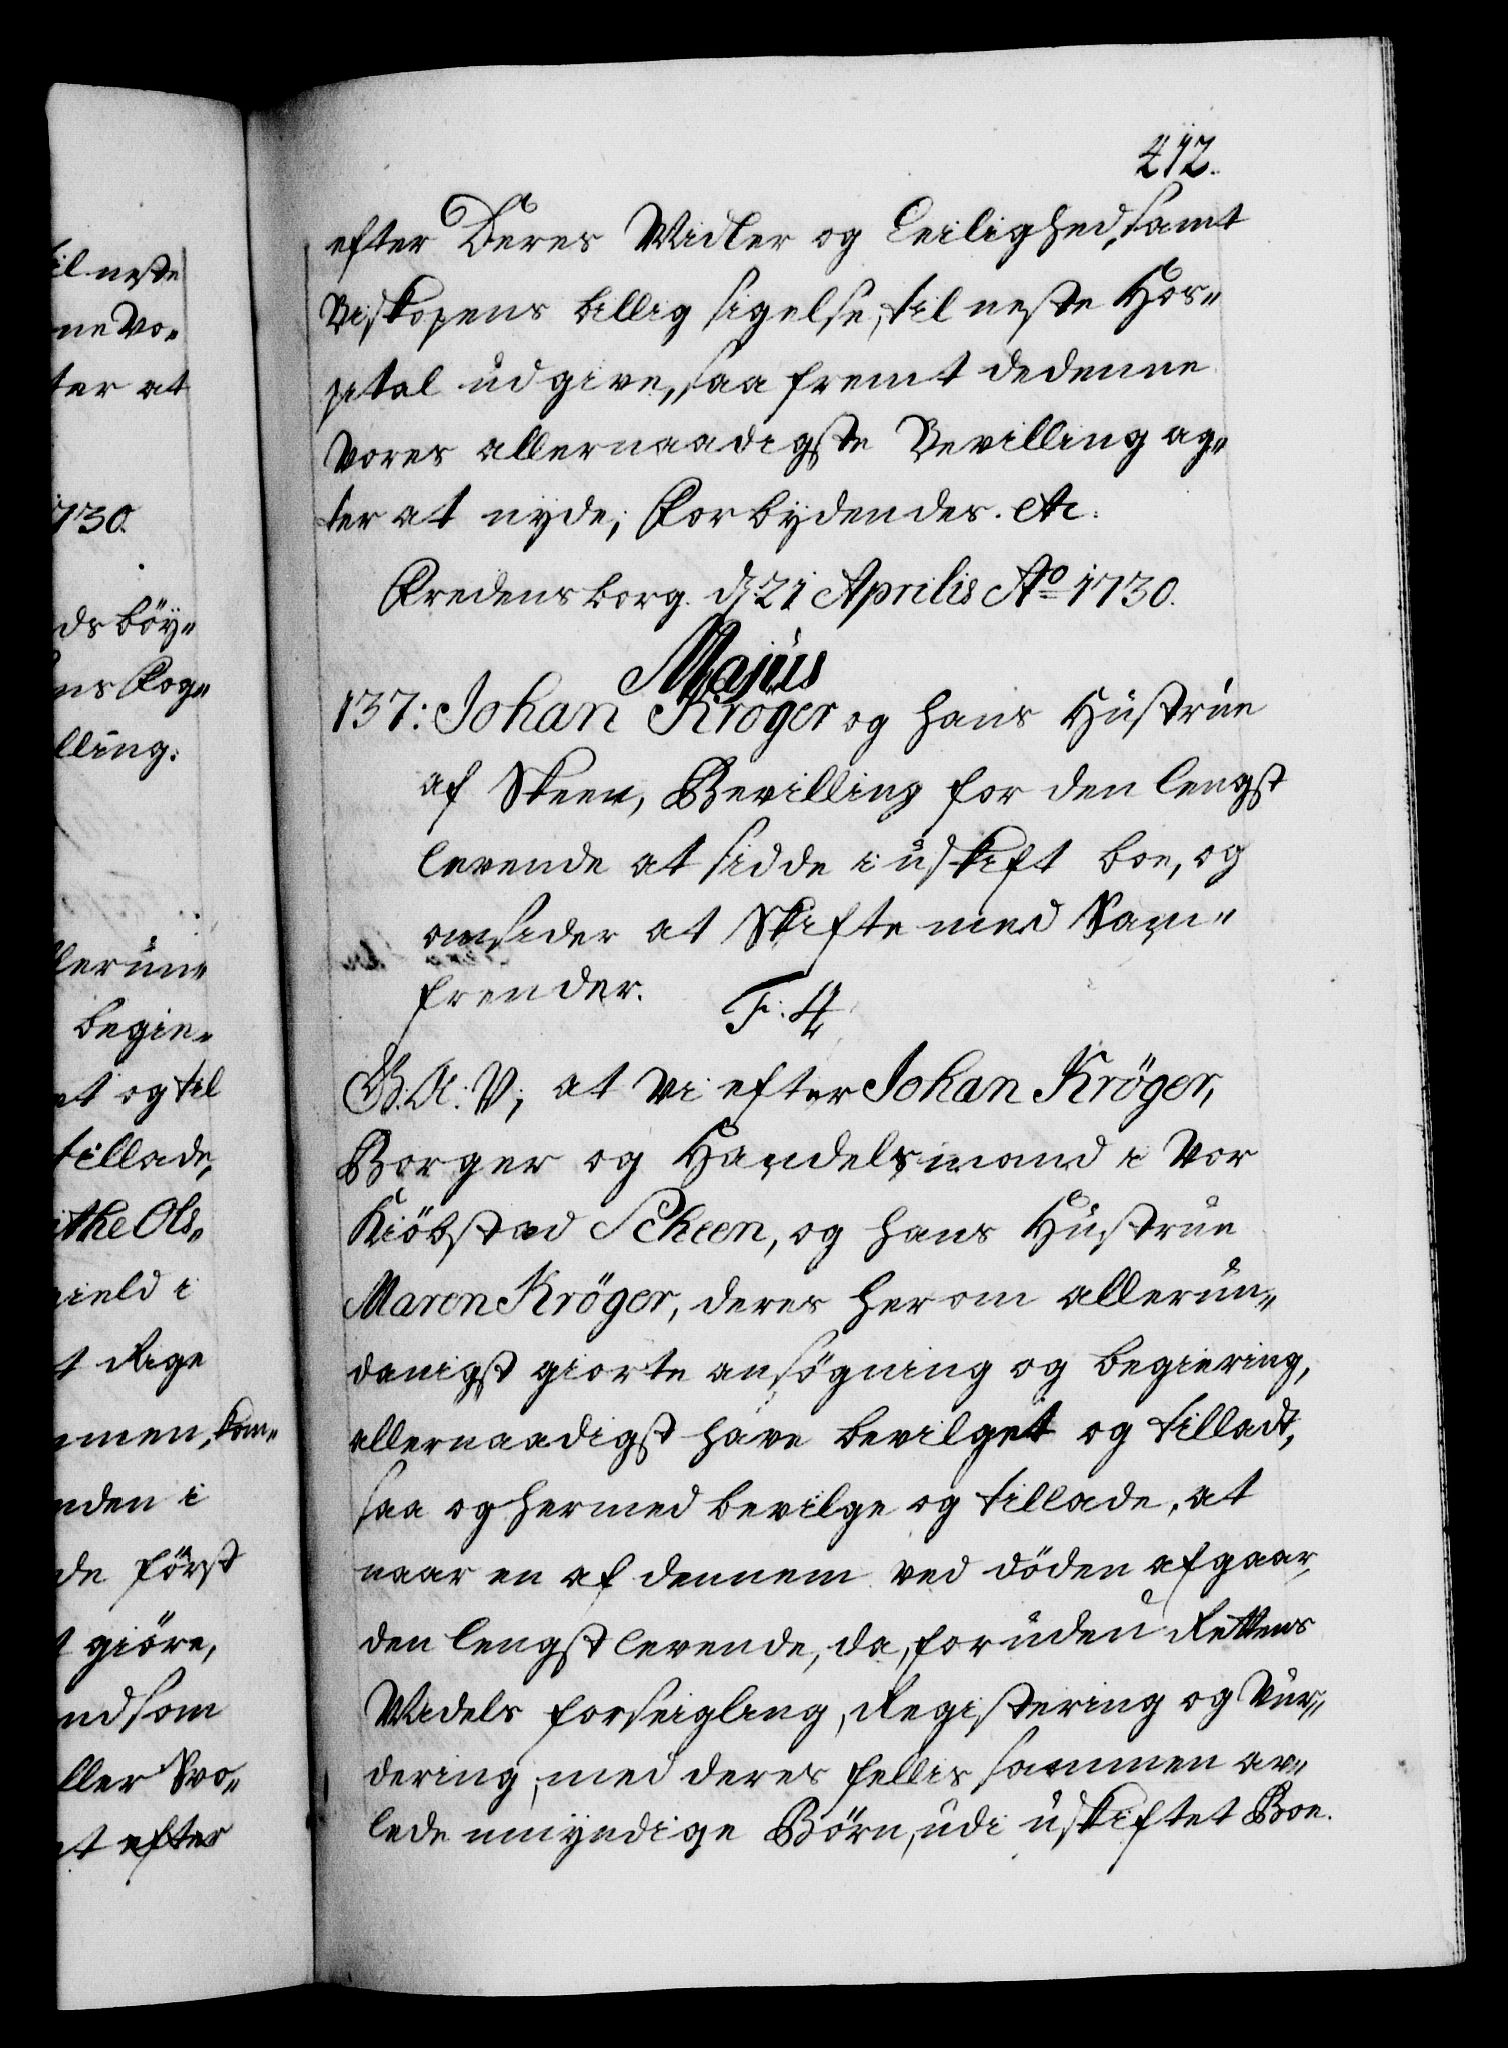 412.
efter Deres Midler og Leilighed, samt
Biskopens billig sigelse, til neste Hos-
pital udgive, saa fremt de denne
Vores allernaadigste Bevilling ag-
ter at nyde; Forbydendes. etc:
Fredensborg. d 21 Aprilis Ao 1730.
Majus
137: Johan Kröger og hans Hustrue
af Skeen, Bevilling for den lengst
levende at sidde i uskift boe, og
omsider at Skifte med Sam-
frender.
F: 4
G. A: V; at Vi efter Johan Kröger,
Borger og Handelsmand i Vor
Kiöbstad Scheen, og hans Hustrue
Maren Kröger, deres herom allerun-
danigst giorte ansögning og begiering,
allernaadigst have bevilget og tilladt,
saa og hermed bevilge og tillade, at
naar en af dennem ved döden afgaar,
den lengst levende, da, foruden Rettens
Midels forseigling, Registering og Vur-
dering, med deres fellis sammen av-
lede umyndige Börn, udi uskiftet Boe.
il neste
ne Vo-
ter at
1730.
ds böy-
ns Fog-
lling:
llerun-
begie-
et og til
tillade,
ithe Ols-
ield i
t Rige
mmen, kom-
nden i
de först
t giöre,
nd som
ller Pro-
et efter